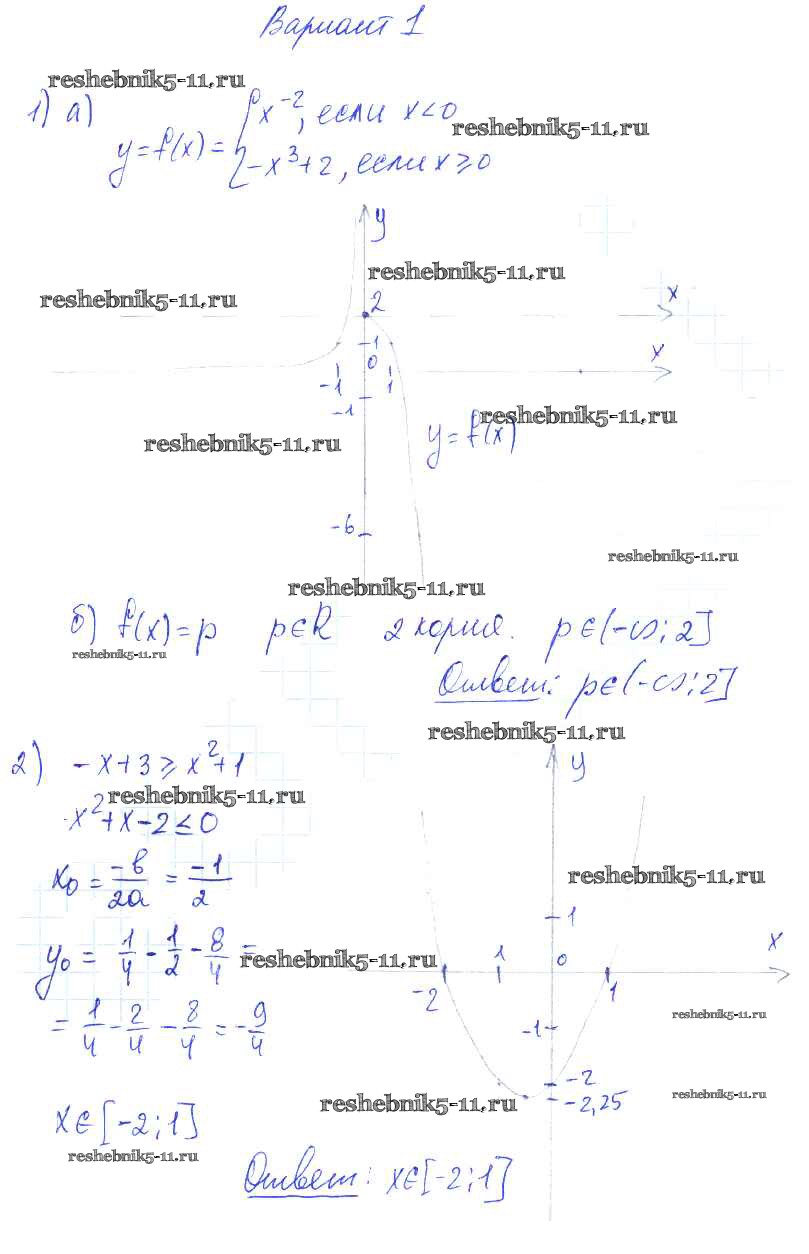 Вариант 1
reshebnik5-11.ru
1) а)
y = f(x) = { x⁻², если x < 0
reshebnik5-11.ru
-x³ + 2, если x ≥ 0
y
reshebnik5-11.ru
reshebnik5-11.ru
2
x
1
0
x
-1
1
-1
reshebnik5-11.ru
y = f(x)
reshebnik5-11.ru
-6
reshebnik5-11.ru
reshebnik5-11.ru
б) f(x) = p p∈R 2 корня. p∈(-∞; 2]
reshebnik5-11.ru
Ответ: p∈(-∞; 2]
reshebnik5-11.ru
2) -x + 3 ≥ x² + 1
reshebnik5-11.ru
x² + x - 2 ≤ 0
x₀ = -в/2a = -1/2
y₀ = 1/4 - 1/2 - 8/4 =
reshebnik5-11.ru
= 1/4 - 2/4 - 8/4 = -9/4
x∈[-2; 1]
reshebnik5-11.ru
y
reshebnik5-11.ru
1
x
1
0
-2
1
reshebnik5-11.ru
-1
-2
-2,25
reshebnik5-11.ru
reshebnik5-11.ru
Ответ: x∈[-2; 1]